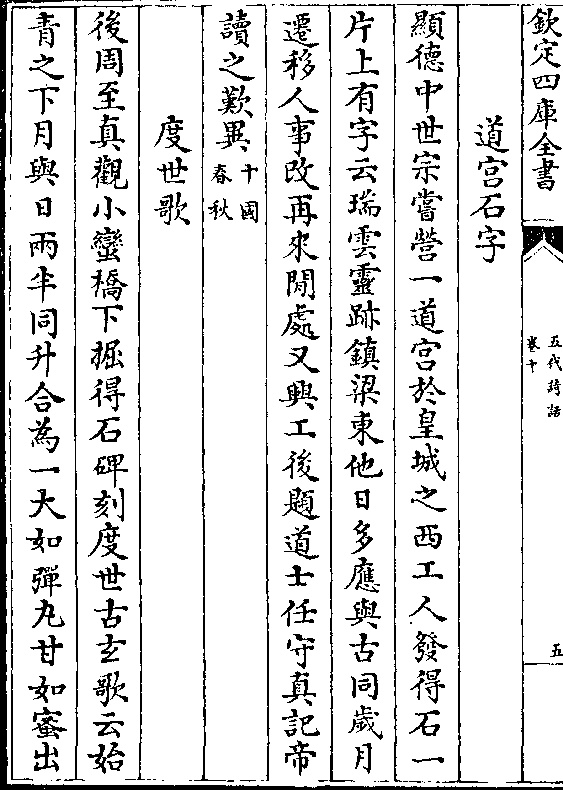 欽定四庫全書
五代詩話
卷十
五
道宫石字
顯德中世宗嘗營一道宫於皇城之西工人發得石一
片上有字云瑞雲靈跡鎮梁東他日多應與古同歲月
遷移人事改再來閒處又興工後題道士任守真記帝
讀之歎異十國
春秋
度世歌
後周至真觀小蠻橋下掘得石碑刻度世古玄歌云始
青之下月與日兩半同升合為一大如彈丸甘如蜜出